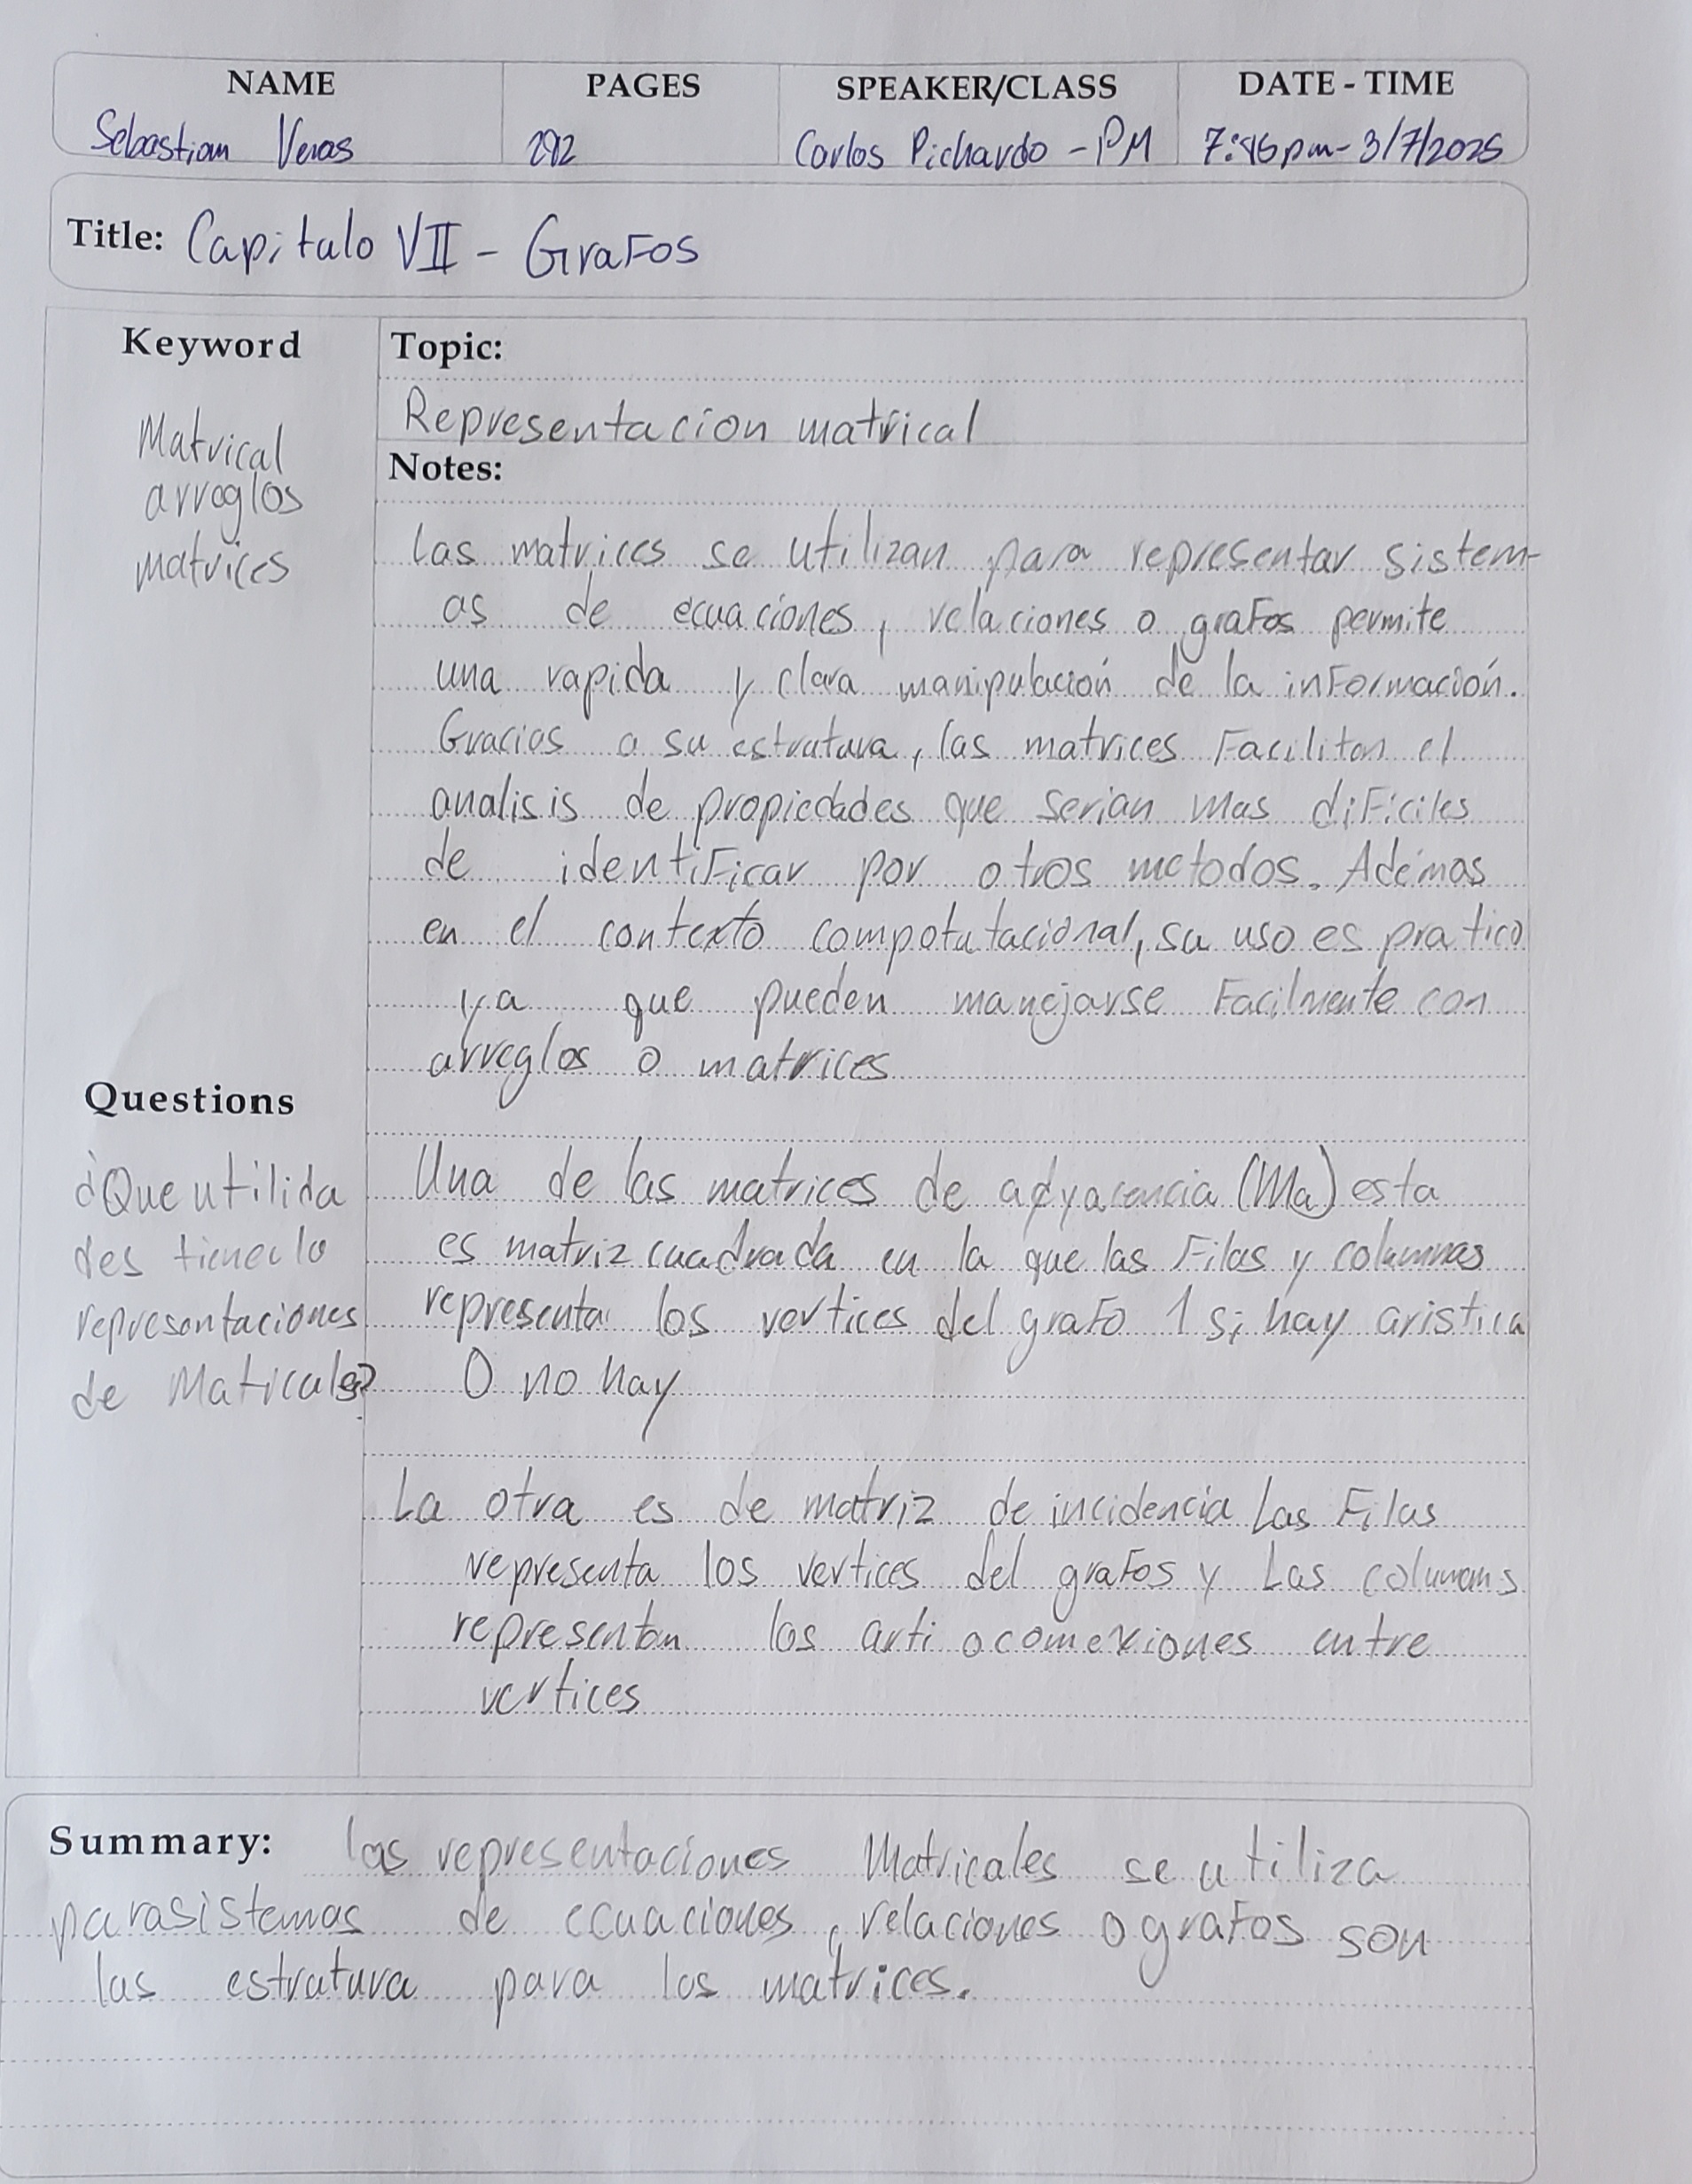 NAME PAGES SPEAKER/CLASS DATE - TIME
Sebastian Veras 292 Carlos Pichardo - PM 7:46pm- 3/7/2025
Title: Capitulo VII - Grafos
Keyword
Matrical
arreglos
matrices
Topic:
Representacion matrical
Notes:
las matrices se utilizan para representar sistem-
as de ecuaciones, relaciones o grafos permite
una rapida y clara manipulación de la información.
Gracias a su estrutura, las matrices Facilitan el
analisis de propiedades que serian mas dificiles
de identificar por otros metodos. Ademas
en el contexto compotutacional, su uso es pratico
ya que pueden manejarse Facilmente con
arreglos o matrices
Questions
¿Que utilida
des tiene lo
representaciones
de Maticales?
Una de las matrices de adyacencia (Ma) esta
es matriz cuadrada en la que las Filas y columnas
representa los vertices del grafo 1 si hay aristica
0 no hay
La otra es de matriz de incidencia Las Filas
representa los vertices del grafos y Las columans
representan los arti o comexiones entre
vertices
Summary: las representaciones Matricales se utiliza
para sistemas de ecuaciones, relaciones o grafos son
las estratura para las matrices.